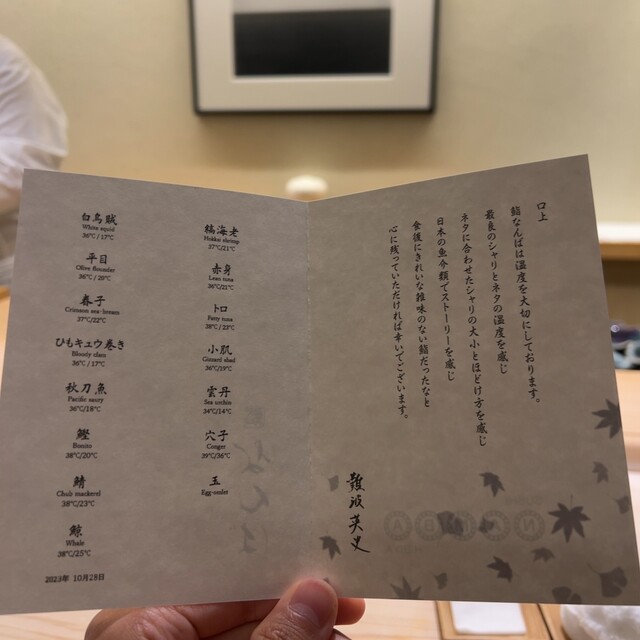 白烏賊
White squid
36℃ / 17℃
平目
Olive flounder
36℃ / 20℃
春子
Crimson sea-bream
37℃/22℃
ひもキュウ巻き
Bloody clam
36℃ / 17℃
秋刀魚
Pacific saury
36℃/18℃
鰹
Bonito
38℃/20℃
鯖
Chub mackerel
38℃/23℃
鯨
Whale
38℃/25℃
縞海老
Hokkai shrimp
37℃/21℃
赤身
Lean tuna
36℃/21℃
トロ
Fatty tuna
38℃ / 23℃
小肌
Gizzard shad
36℃/19℃
雲丹
Sea urchin
34℃/14℃
穴子
Conger
39℃/36℃
玉
Egg-omlet
2023年 10月28日
口上
鮨なんばは温度を大切にしております。
最良のシャリとネタの温度を感じ
ネタに合わせたシャリの大小とほどけ方を感じ
日本の魚介類でストーリーを感じ
食後にきれいな雑味のない鮨だったなと
心に残っていただければ幸いでございます。
難波英史
NANBA